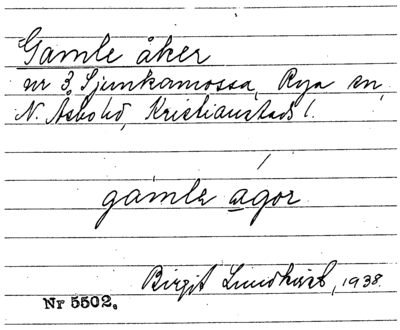 Gamle åker
nr 3, Ljunkamossa, Rya sn,
N. Åsbo hd, Kristianstads l.
gamle agor
Birgit Lundkvist, 1938.
Nr 5502.